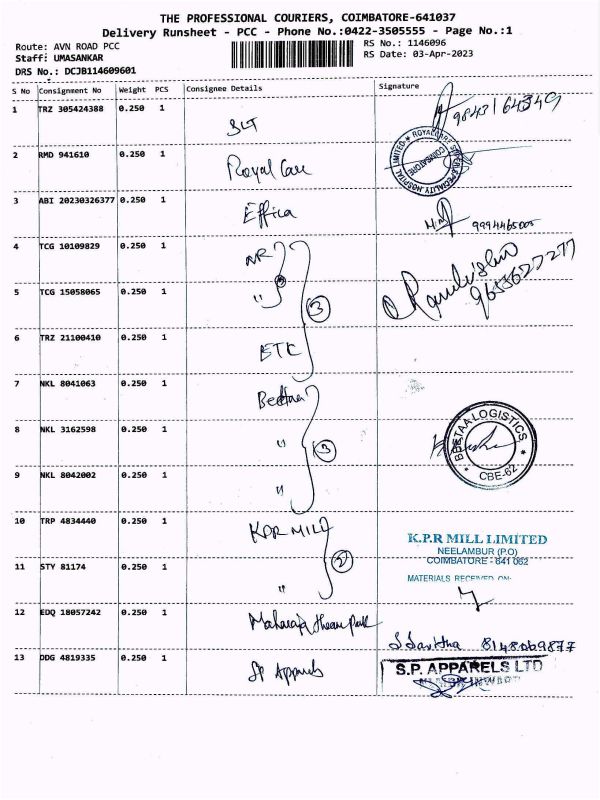 THE PROFESSIONAL COURIERS, COIMBATORE-641037
Delivery Runsheet - PCC - Phone No.:0422-3505555 - Page No.:1
Route: AVN ROAD PCC
RS No.: 1146096
Staff: UMASANKAR
RS Date: 03-Apr-2023
DRS No.: DCJB114609601
S No Consignment No Weight PCS Consignee Details Signature
1 TRZ 305424388 0.250 1 BLT
2 RMD 941610 0.250 1 Royal Care
COIMBATORE
3 ABI 20230326377 0.250 1 Effica 9994465005
4 TCG 10109829 0.250 1 NR
5 TCG 15058065 0.250 1 " 3
6 TRZ 21100410 0.250 1 ETC
7 NKL 8041063 0.250 1 Beetaa
8 NKL 3162598 0.250 1 " 3
BEETAA LOGISTICS
CBE-62
9 NKL 8042002 0.250 1 "
10 TRP 4834440 0.250 1 KPR MILL
K.P.R MILL LIMITED
NEELAMBUR (P.O)
COIMBATORE - 641 062
MATERIALS RECEIVED ON:
11 STY 81174 0.250 1 " 2
12 EDQ 18057242 0.250 1 Maharaja theam park
S Savitha 8148069877
13 DDG 4819335 0.250 1 SP Apparels
S.P. APPARELS LTD